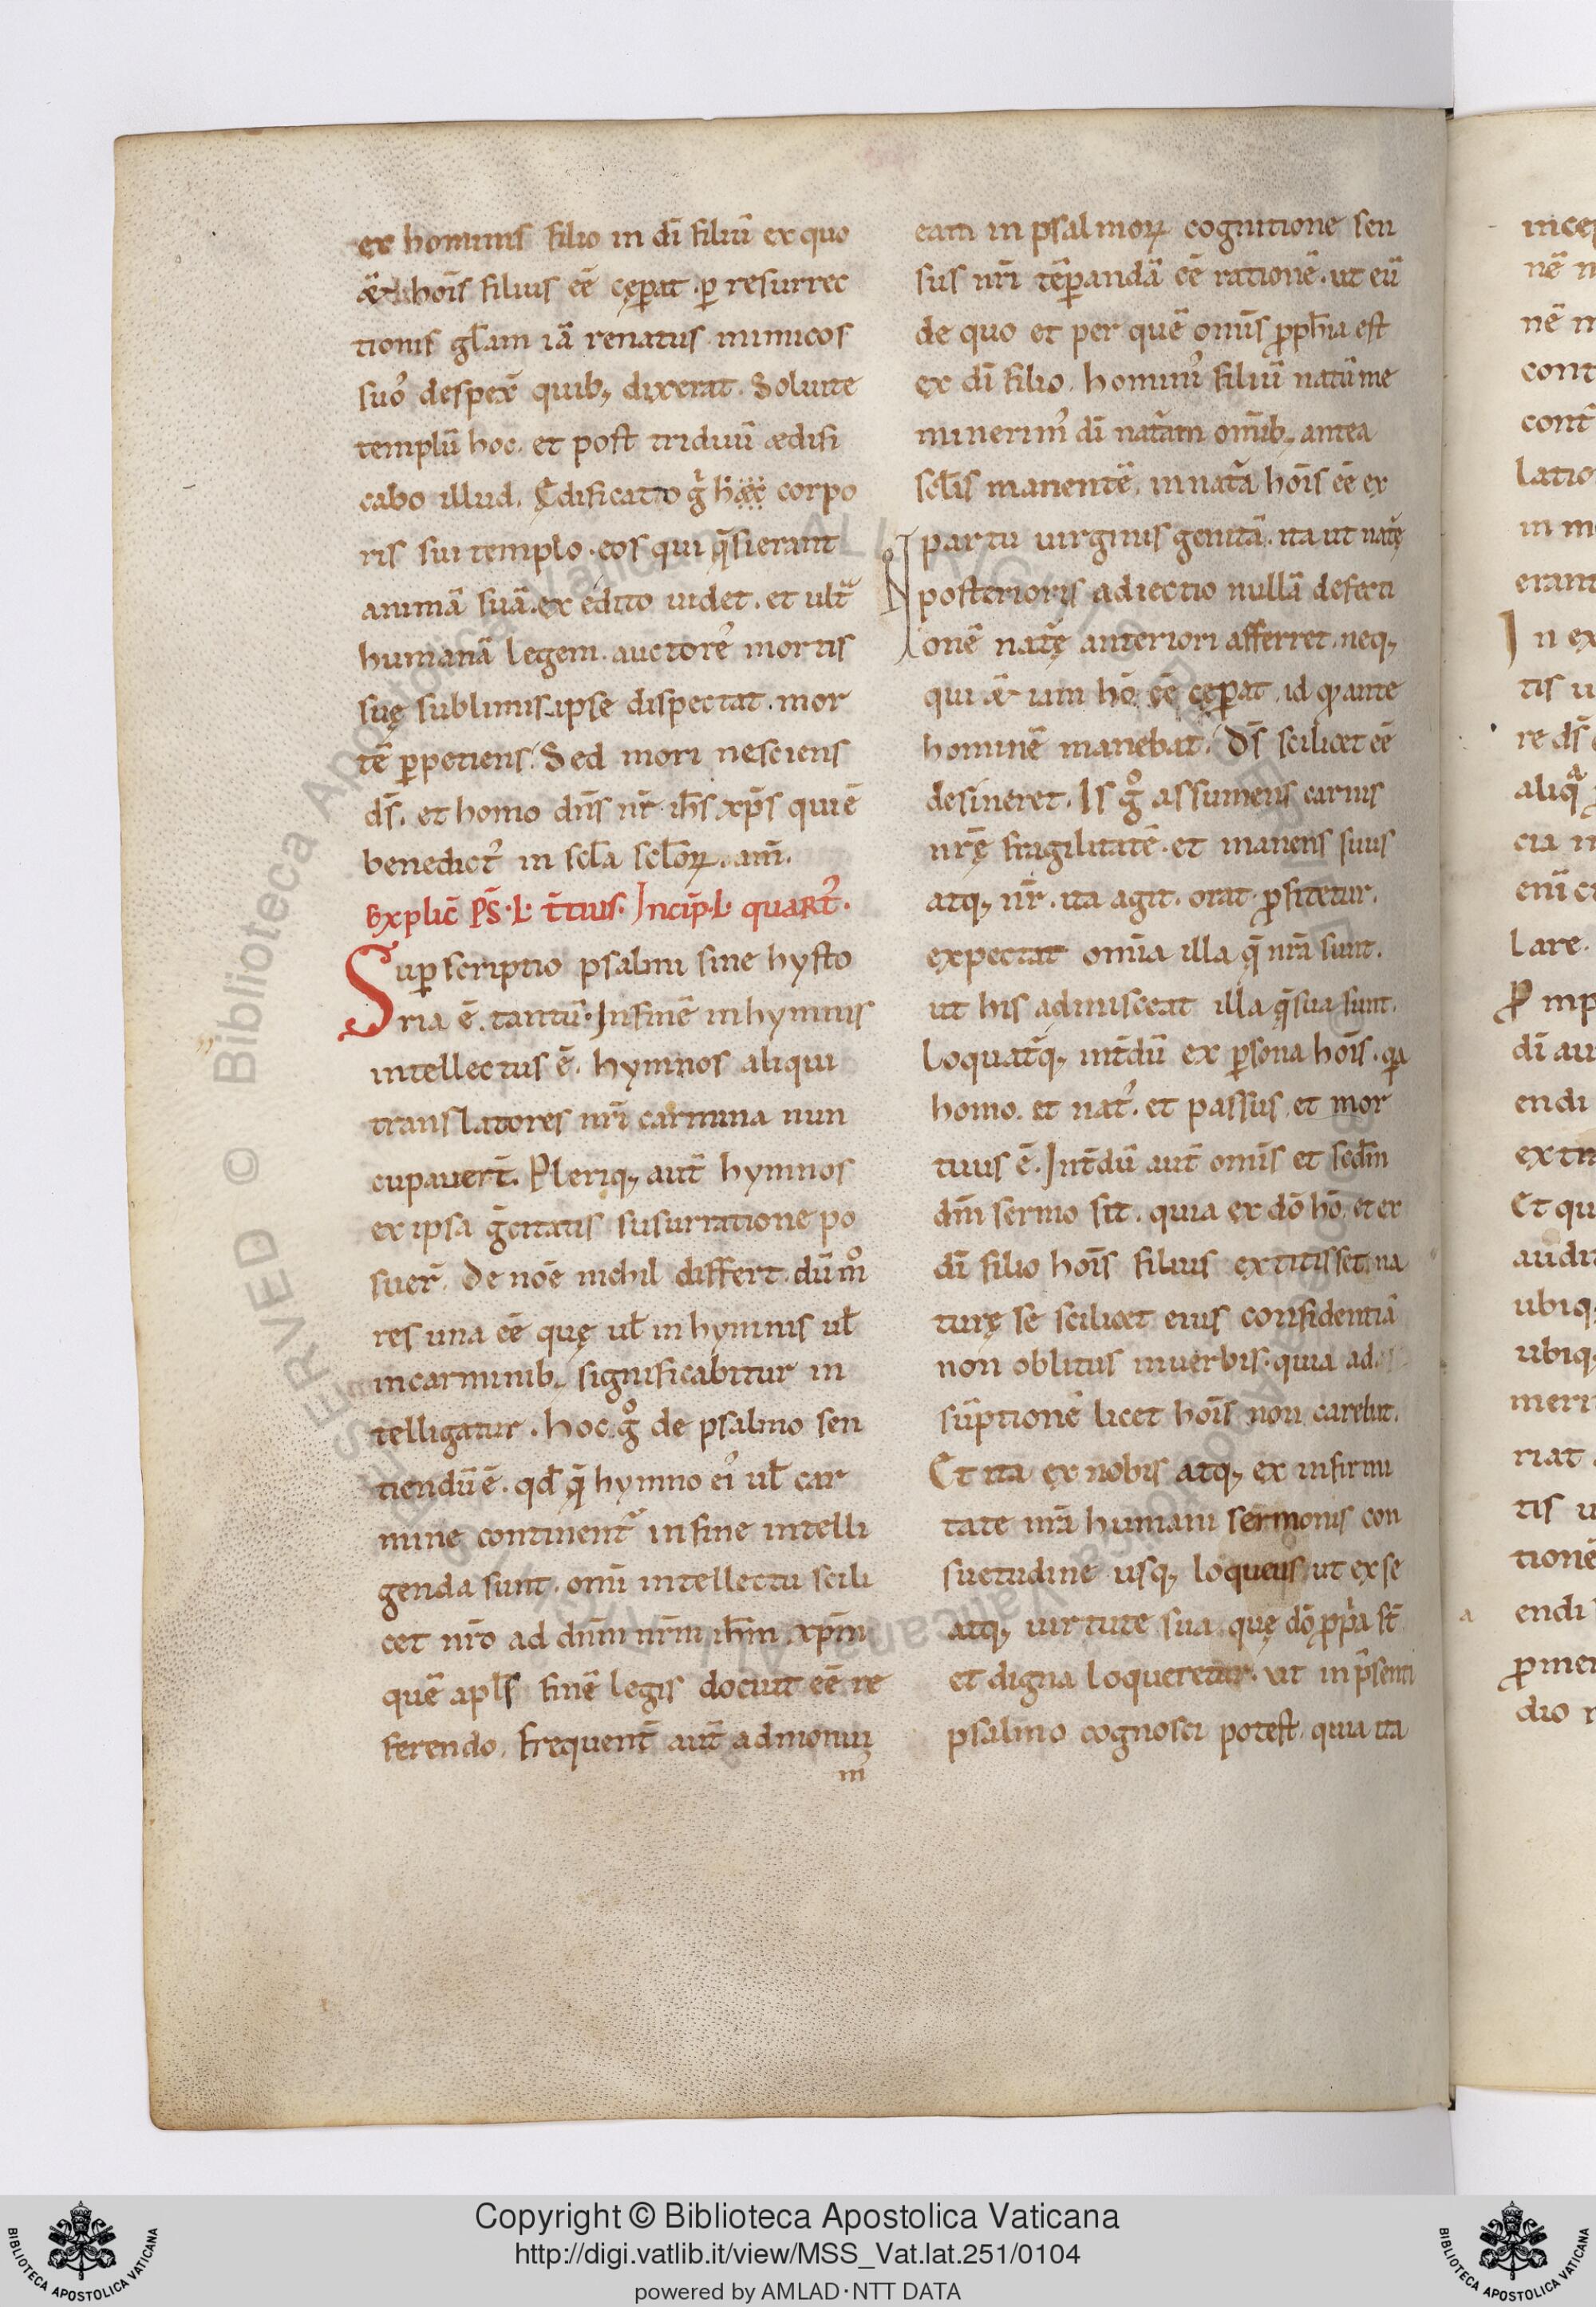 ex hominis filio in dī filiū ex quo
hoīs filius eē cęꝑat · ꝑ resurrec
tionis gl̄am iā renatus inimicos
suos despex̄ quibꝫ dixerat. Soluite
templū hoc. et post triduū ædifi
cabo illud. Ędificato g̊ hæc corpo
ris sui templo · eos qui q̄sierant
animā suā. ex edito uidet. et ultᵃ
humanā legem. auctorēs mortis
suę sublimis ipse dispectat. mor
tē ꝑpetiens. Sed mori nesciens
ds̄. et homo dn̄s nr̄ ih̄s xp̄s qui ē
benedictꝰ in scl̄a scl̄oꝝ. am̄.
Explic̄ PS̄ · L · t̄tius. Incip̄ · L · quaRtꝰ.
Suꝑscriptio psalmi sine hysto
ria ē. tantū. In finē in hymnis
intellectus ē. hymnos aliqui
translatores nr̄i carmina nun
cupauer̄t. Pleriqꝫ aut̄ hymnos
ex ipsa ḡcitatis susurratione po
suer̄. De noē nichil differt. dūm̊
res una eē quę ul̄ in hymnis ul̄
in carminibꝫ significabitur in
telligatur. hoc g̊ de psalmo sen
tiendū ē. qd̄ q̄ hymno eiꝰ ul̄ car
mine continentᷣ in fine intelli
genda sunt. omī intellectu scili
cet nr̄o ad dn̄m nr̄m ih̄m xp̄m
quē apl̄s finē legis docuit eē re
ferendo. frequent̄ aut̄ admonui
mꝰ
eam in psalmoꝝ cognitione sen
sus nr̄i tēꝑandā eē rationē. ut eū
de quo et per quē omīs ꝓph̄ia est
ex dī filio. hominis filiū natū me
minerimꝰ dī natᷣam om̄ibꝫ antea
scl̄is manentē. in natᷣā hoīs eē ex
partu uirginis genitā. ita ut natᷣę
posterioris adiectio nullā defecti
onē natᷣę anteriori afferret. neqꝫ
qui iam hō eē cęꝑat id qꝫ ante
hominē manebat. Ds̄ scilicet eē
desineret. Is g̊ assumens carnis
nr̄ę fragilitatē. et manens suus
atqꝫ nr̄. ita agit. orat. ꝓfitetur.
expectat om̄ia illa q̄ nr̄a sunt.
ut his admisceat illa q̄ sua sunt.
Loquatᷣqꝫ int̄dū ex ꝑsona hoīs. qa
homo. et natꝰ. et passus et mor
tuus ē. Int̄dū aut̄ omīs et scd̄m
dm̄ sermo sit. quia ex dō hō. et ex
dī filio hoīs filius extitisset. na
turę se scilicet eius confidentiā
non oblitus in uerbis. quia ad
sūptione licet hoīs non carebit.
Et ita ex nobis atqꝫ ex infirmi
tate nr̄a humani sermonis con
suetudine usqꝫ loquens ut ex se
atqꝫ uirtute sua quę dō ꝓpͥa st̄
et digna loqueretur. ut in p̄senti
psalmo cognosci potest. quia ita
Copyright © Biblioteca Apostolica Vaticana
http://digi.vatlib.it/view/MSS_Vat.lat.251/0104
powered by AMLAD·NTT DATA